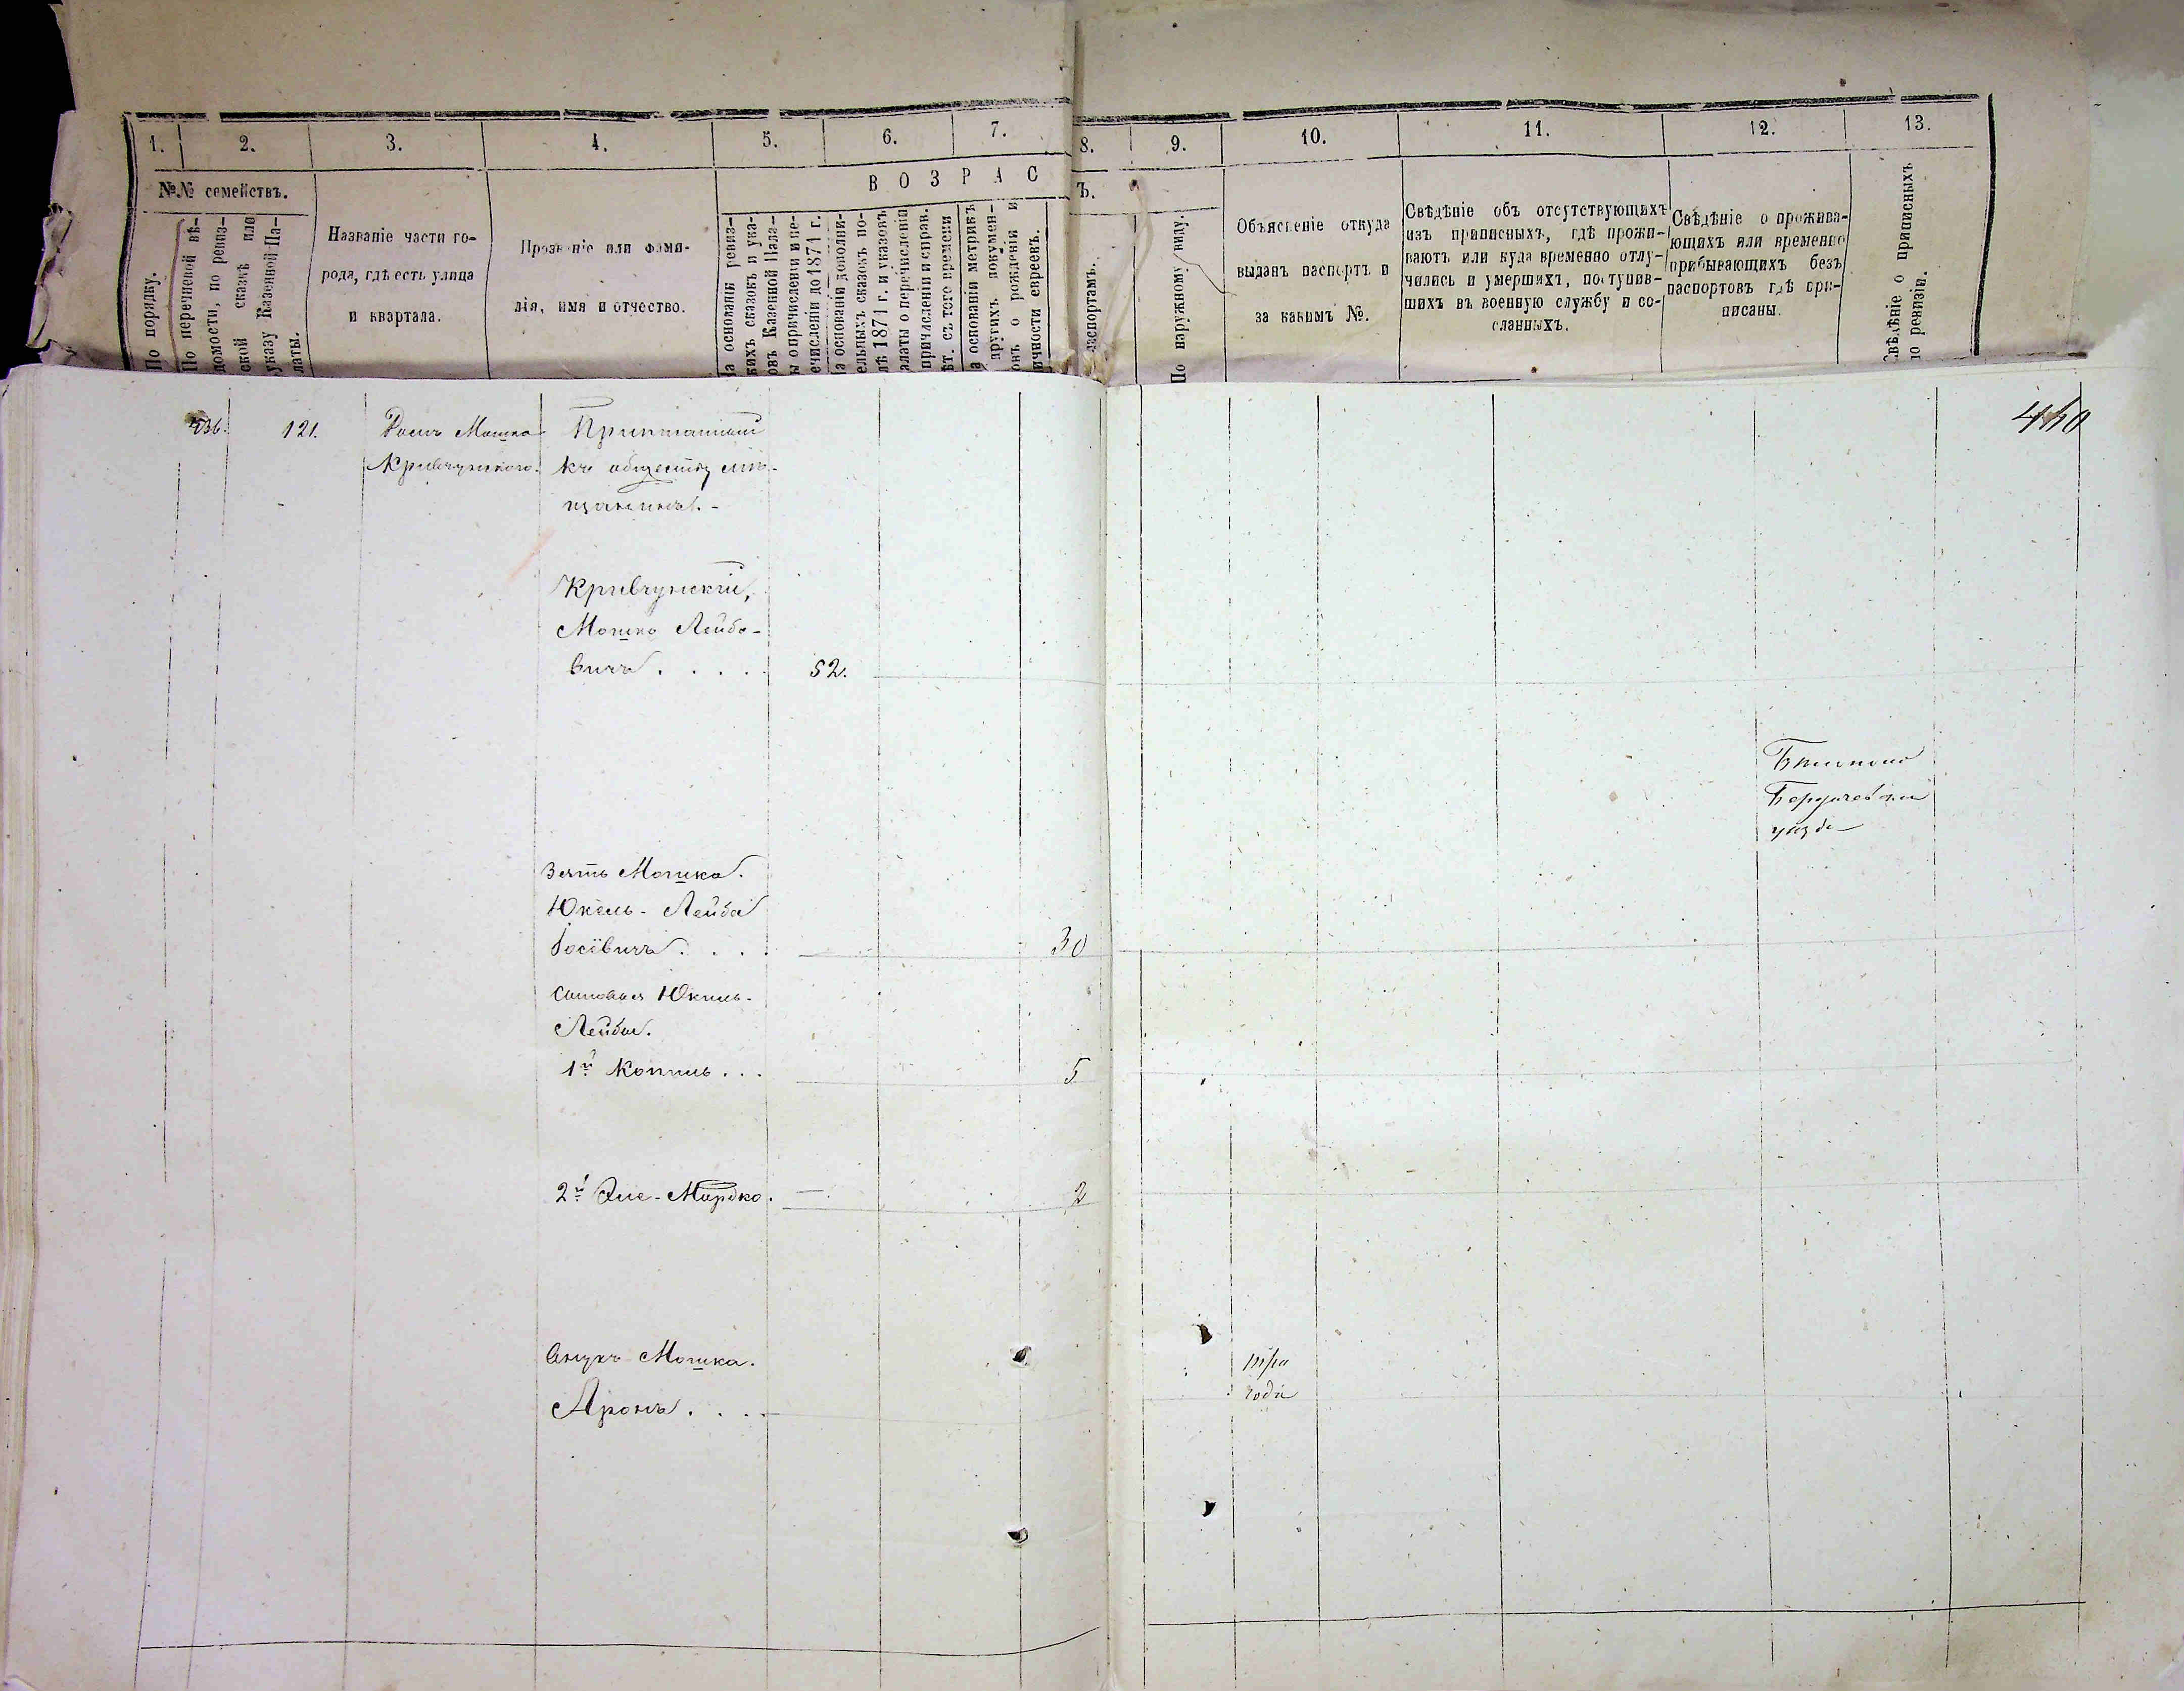 1.
2.
3.
4.
5.
6.
7.
8.
9.
10.
11.
12.
13.
№№ семействъ.
По порядку.
По перечневой вѣ-
домости, по ревиз-
ской сказкѣ или
указу Казенной Па-
латы.
Названіе части го-
рода, гдѣ есть улица
и квартала.
Прозваніе или фами-
лія, имя и отчество.
ВОЗРАС
Ъ.
а основаніи ревиз-
кихъ сказокъ и ука-
овъ Казенной Пала-
ы о причисленіи и пе-
ечисленіи до 1871 г.
а основаніи дополни-
ельныхъ сказокъ по-
лѣ 1871 г. и указовъ
алаты о перечисленіи
причисленіи и справ.
ѣт. съ того времени
а основаніи метрикъ
другихъ докумен-
овъ о рожденіи и
ичности евреевъ.
аспортамъ.
По наружному виду.
Объясненіе откуда
выданъ паспортъ и
за какимъ №.
Свѣдѣніе объ отсутствующихъ
изъ приписныхъ, гдѣ прожи-
ваютъ или куда временно отлу-
чились и умершихъ, поступив-
шихъ въ военную службу и со-
сланныхъ.
Свѣдѣніе о прожива-
ющихъ или временно
прибывающихъ безъ
паспортовъ гдѣ при-
писаны.
Свѣдѣніе о приписныхъ
по ревизіи.
121.
Мошка
Кривчунского.
къ обществу мѣ-
щанинъ.-
Кривчунскій,
Мошко Лейбо-
вичъ . . . . .
52.
Бердичевска
уѣзда
Зять Мошка.
Юкель-Лейба
Іосіевичъ . . . .
30
Сыновья Юкель-
Лейбы.
1й Копель . . .
5
2й Эле-Мордко.
2
Внукъ Мошка.
Аронъ. . . .
три
года